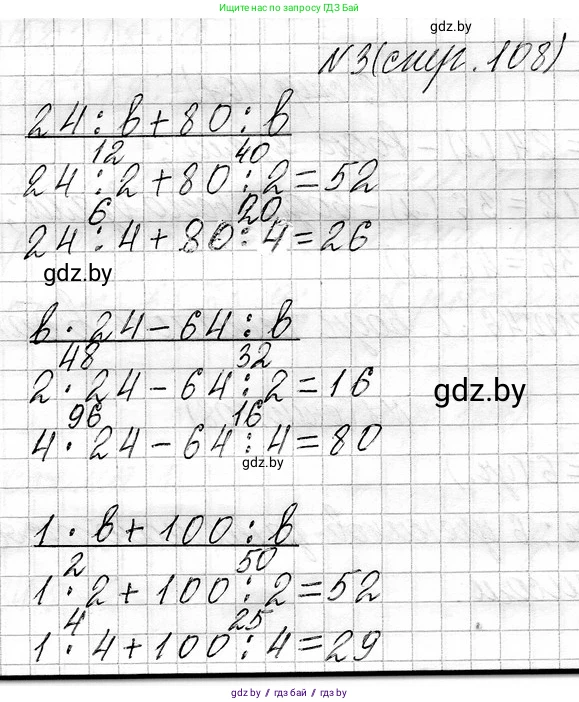 Ищите по запросу ГДЗ Бай
gdz.by
N3(стр. 108)
24 : в + 80 : в
12 40
24 : 2 + 80 : 2 = 52
6 20
24 : 4 + 80 : 4 = 26
gdz.by
в · 24 - 64 : в
48 32
2 · 24 - 64 : 2 = 16
gdz.by
96 16
4 · 24 - 64 : 4 = 80
gdz.by
1 · в + 100 : в
2 50
1 · 2 + 100 : 2 = 52
4 25
1 · 4 + 100 : 4 = 29
gdz by // гдз бай // gdz by